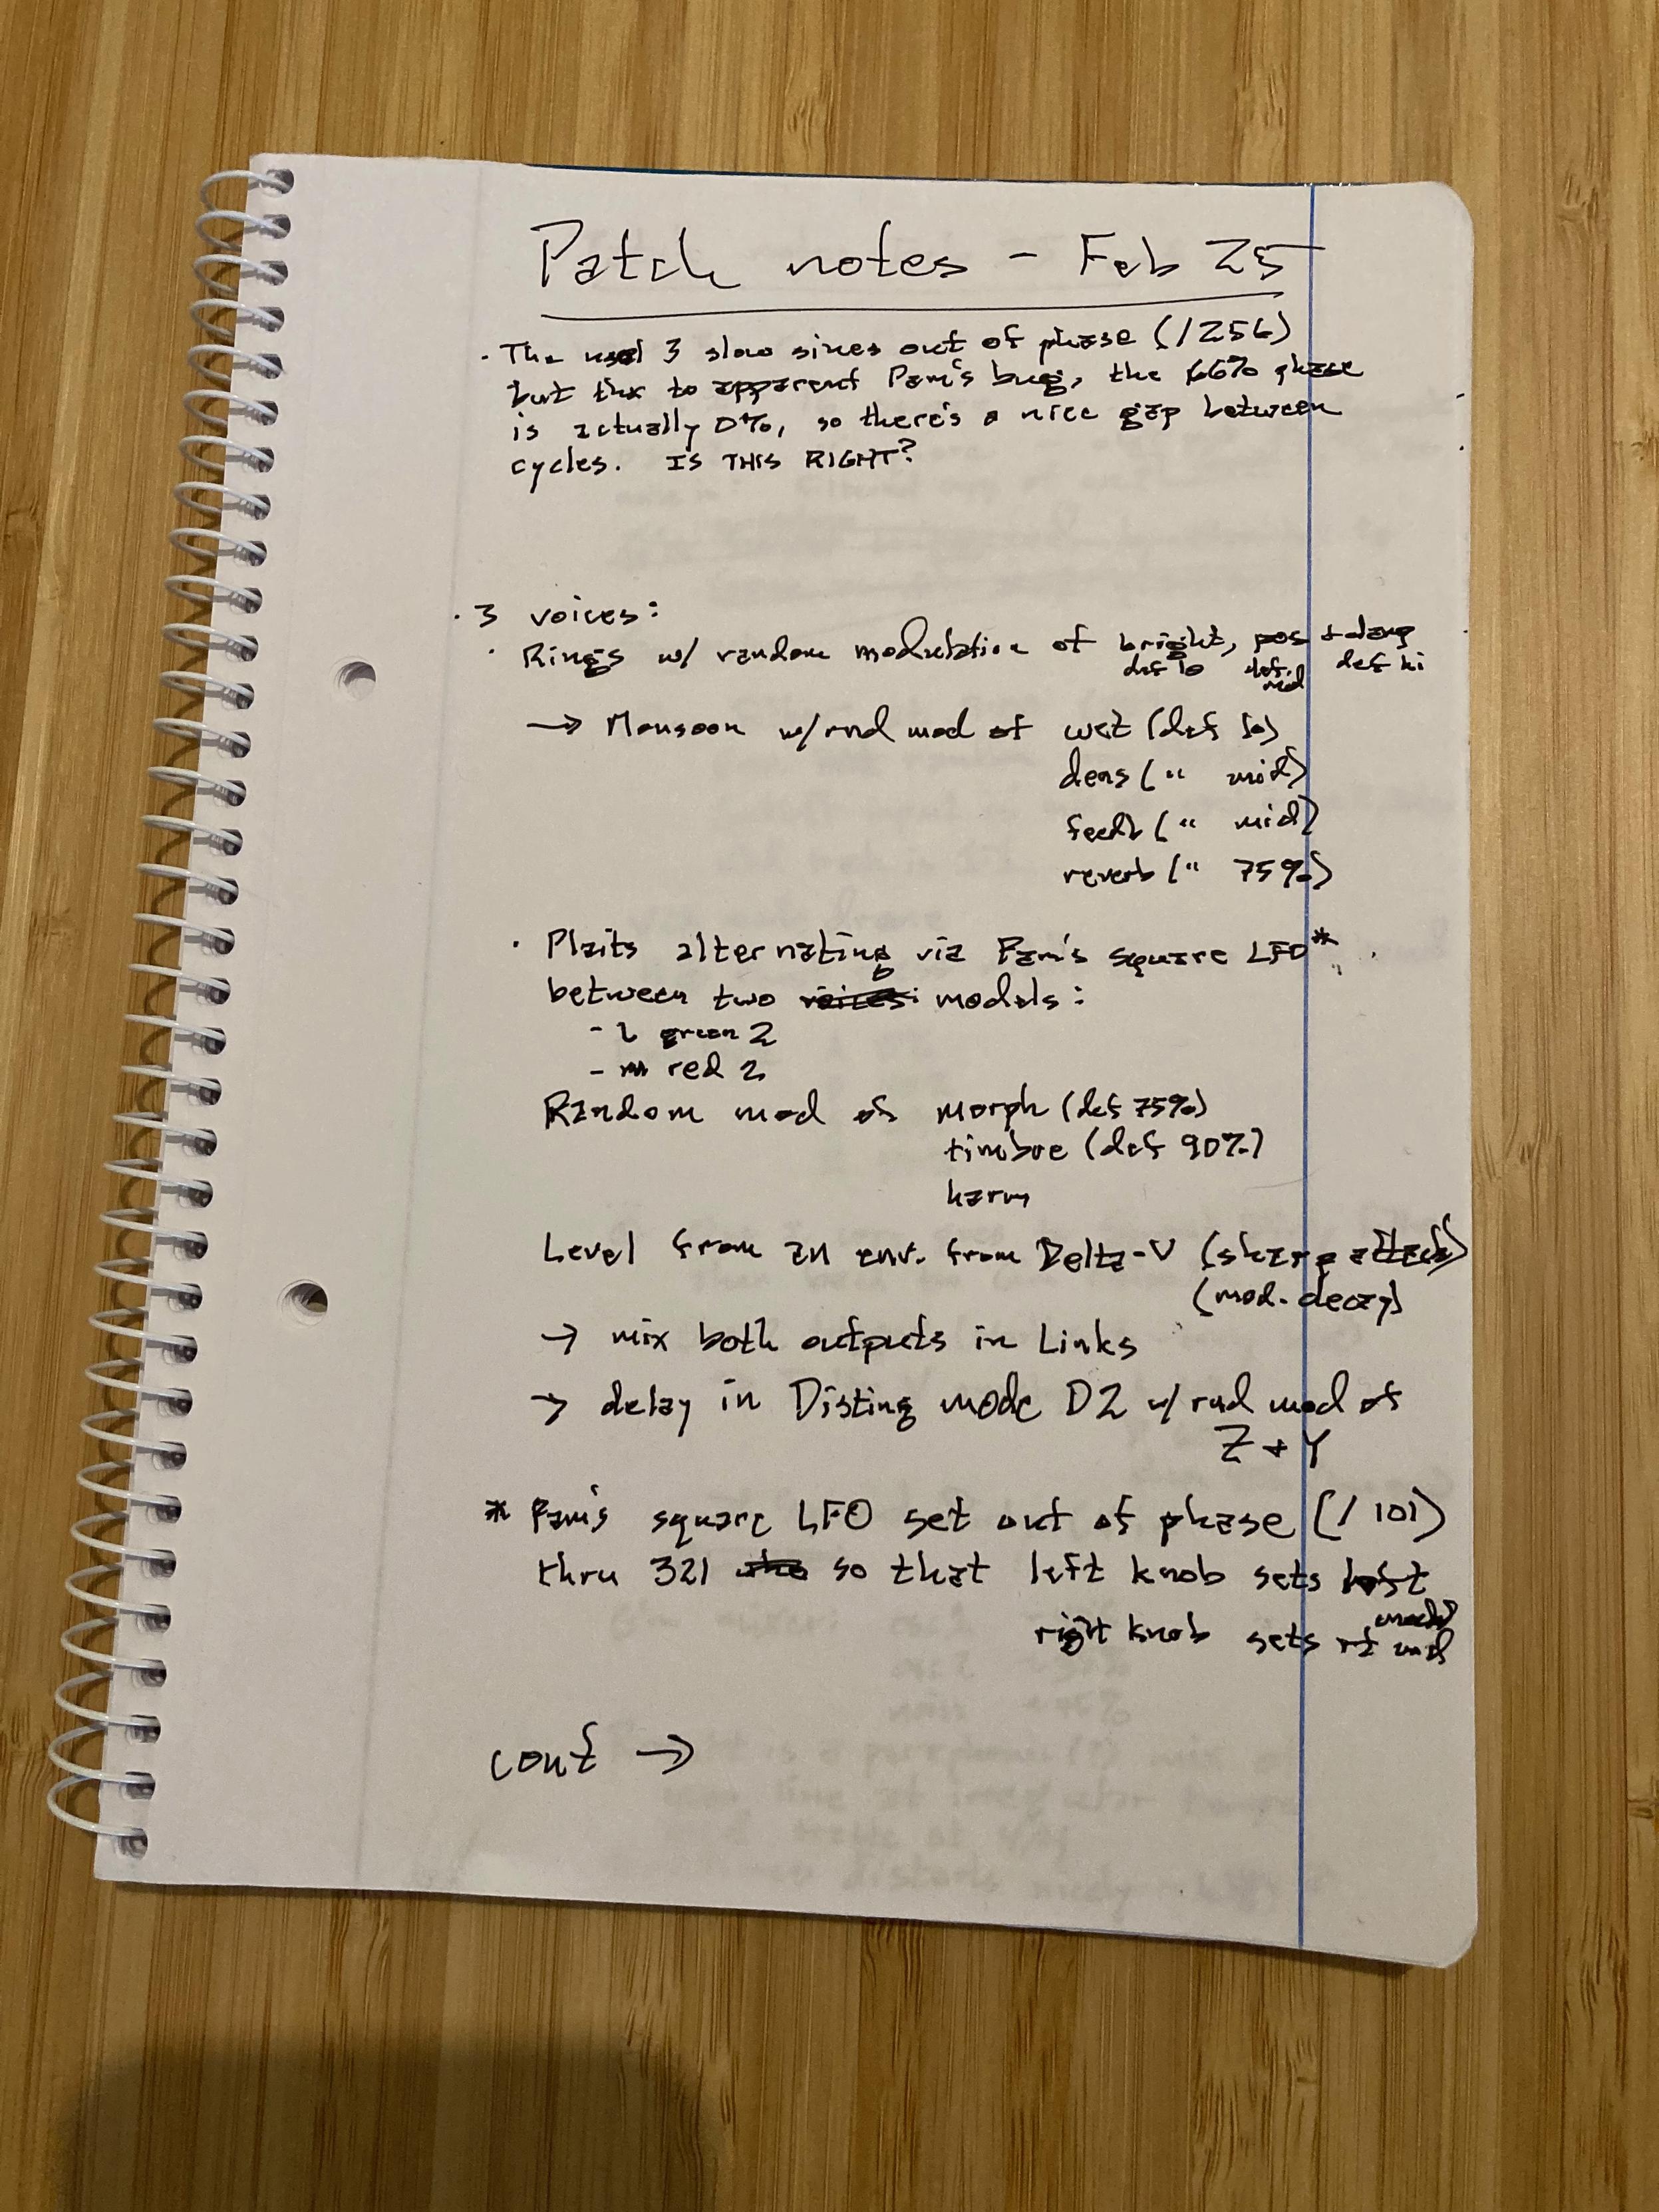 Patch notes - Feb 25
· The usual 3 slow sines out of phase (/256)
but thx to apparent Pam's bug, the 66% phase
is actually 0%, so there's a nice gap between
cycles. IS THIS RIGHT?
· 3 voices:
· Rings w/ random modulation of bright, pos + damp
def lo def. mid def hi
→ Monsoon w/ rnd mod of wet (def lo)
dens (" mid)
feedb (" mid)
reverb (" 75%)
· Plaits alternating via Pam's square LFO*
between two models:
- l green 2
- m red 2
Random mod of morph (def 75%)
timbre (def 90%)
harm
Level from an env. from Delta-V (sharp attack)
(mod. decay)
→ mix both outputs in Links
→ delay in Disting mode D2 w/ rnd mod of
Z + Y
* Pam's square LFO set out of phase (/101)
thru 321 so that left knob sets
right knob sets rt model
cont →